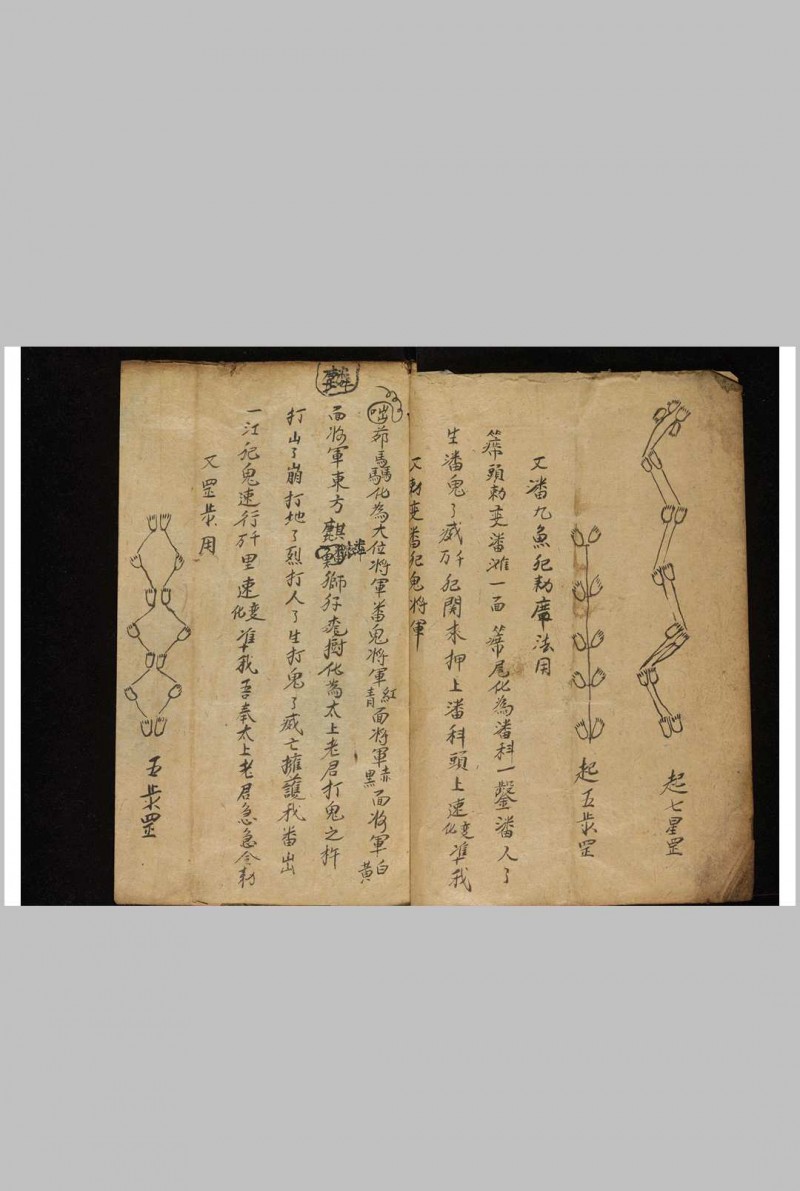 起七星罡
起五歩罡
又潘九魚犯勅席法用
頭勅变潘滩一面 尾化為潘科一 潘人了
生潘鬼了威万千犯関来押上潘科頭上速变化准我
又勅变番犯鬼将軍
茆馬 化為大位将軍番鬼将軍紅青面将軍赤黑面将軍白黄
麟
面将軍東方麒麟獅 樹化為太上老君打鬼之杵
打山了崩打地了烈打人了生打鬼了威亡擁護我番出
一江犯鬼速行万千里速变化准我吾奉太上老君急急令勅
又罡歩用
五歩罡